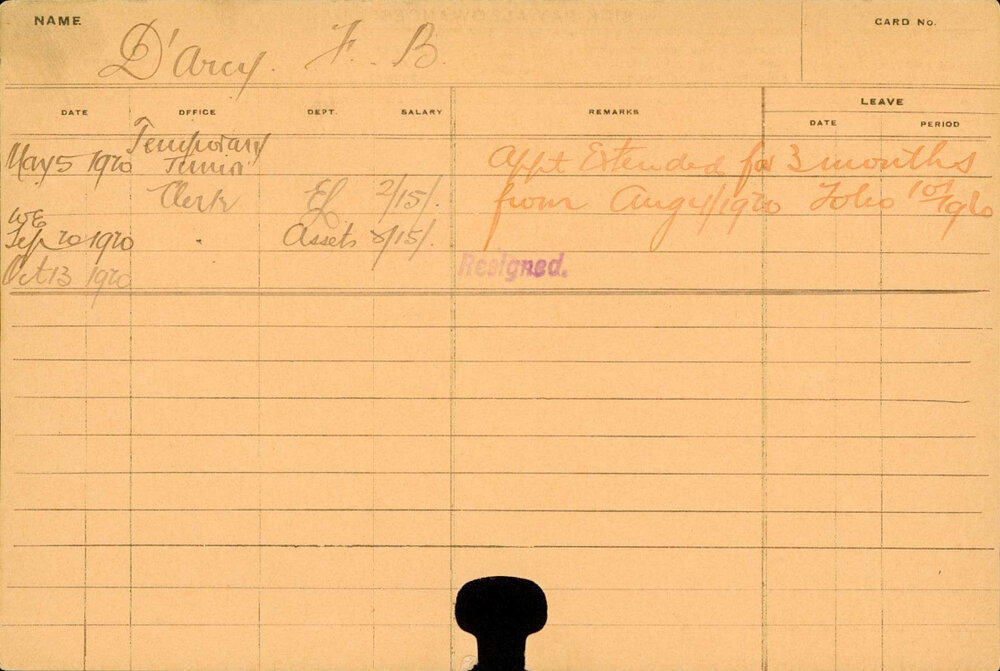 NAME.
CARD No.
D'Arcy. F. B.
DATE OFFICE DEPT. SALARY REMARKS LEAVE
DATE PERIOD
Temporary
May 5 1920 Junior Appt Extended for 3 months
Clerk 2/15/. from Aug 4/1920 Folio 1920
WE
Sep 20 1920 " Assets 2/15/.
Oct 13 1920 Resigned.